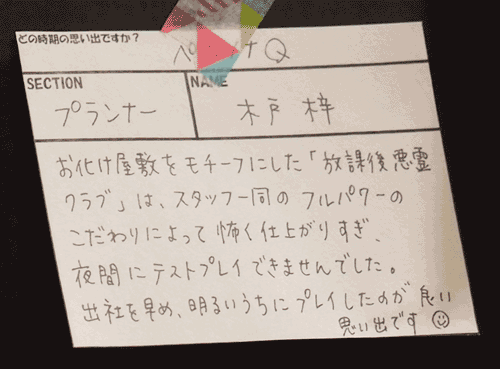 どの時期の思い出ですか?
ペ ナQ
SECTION
NAME
プランナー
木戸 梓
お化け屋敷をモチーフにした「放課後悪霊
クラブ」は、スタッフ一同のフルパワーの
こだわりによって怖く仕上がりすぎ、
夜間にテストプレイできませんでした。
出社を早め、明るいうちにプレイしたのが良い
思い出です